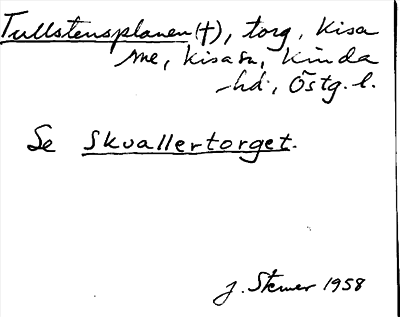 Tullstensplanen (†), torg, Kisa
sne, Kisa sn, Kinda
hd., Östg. l.
Se Skvallertorget.
J. Stemer 1958